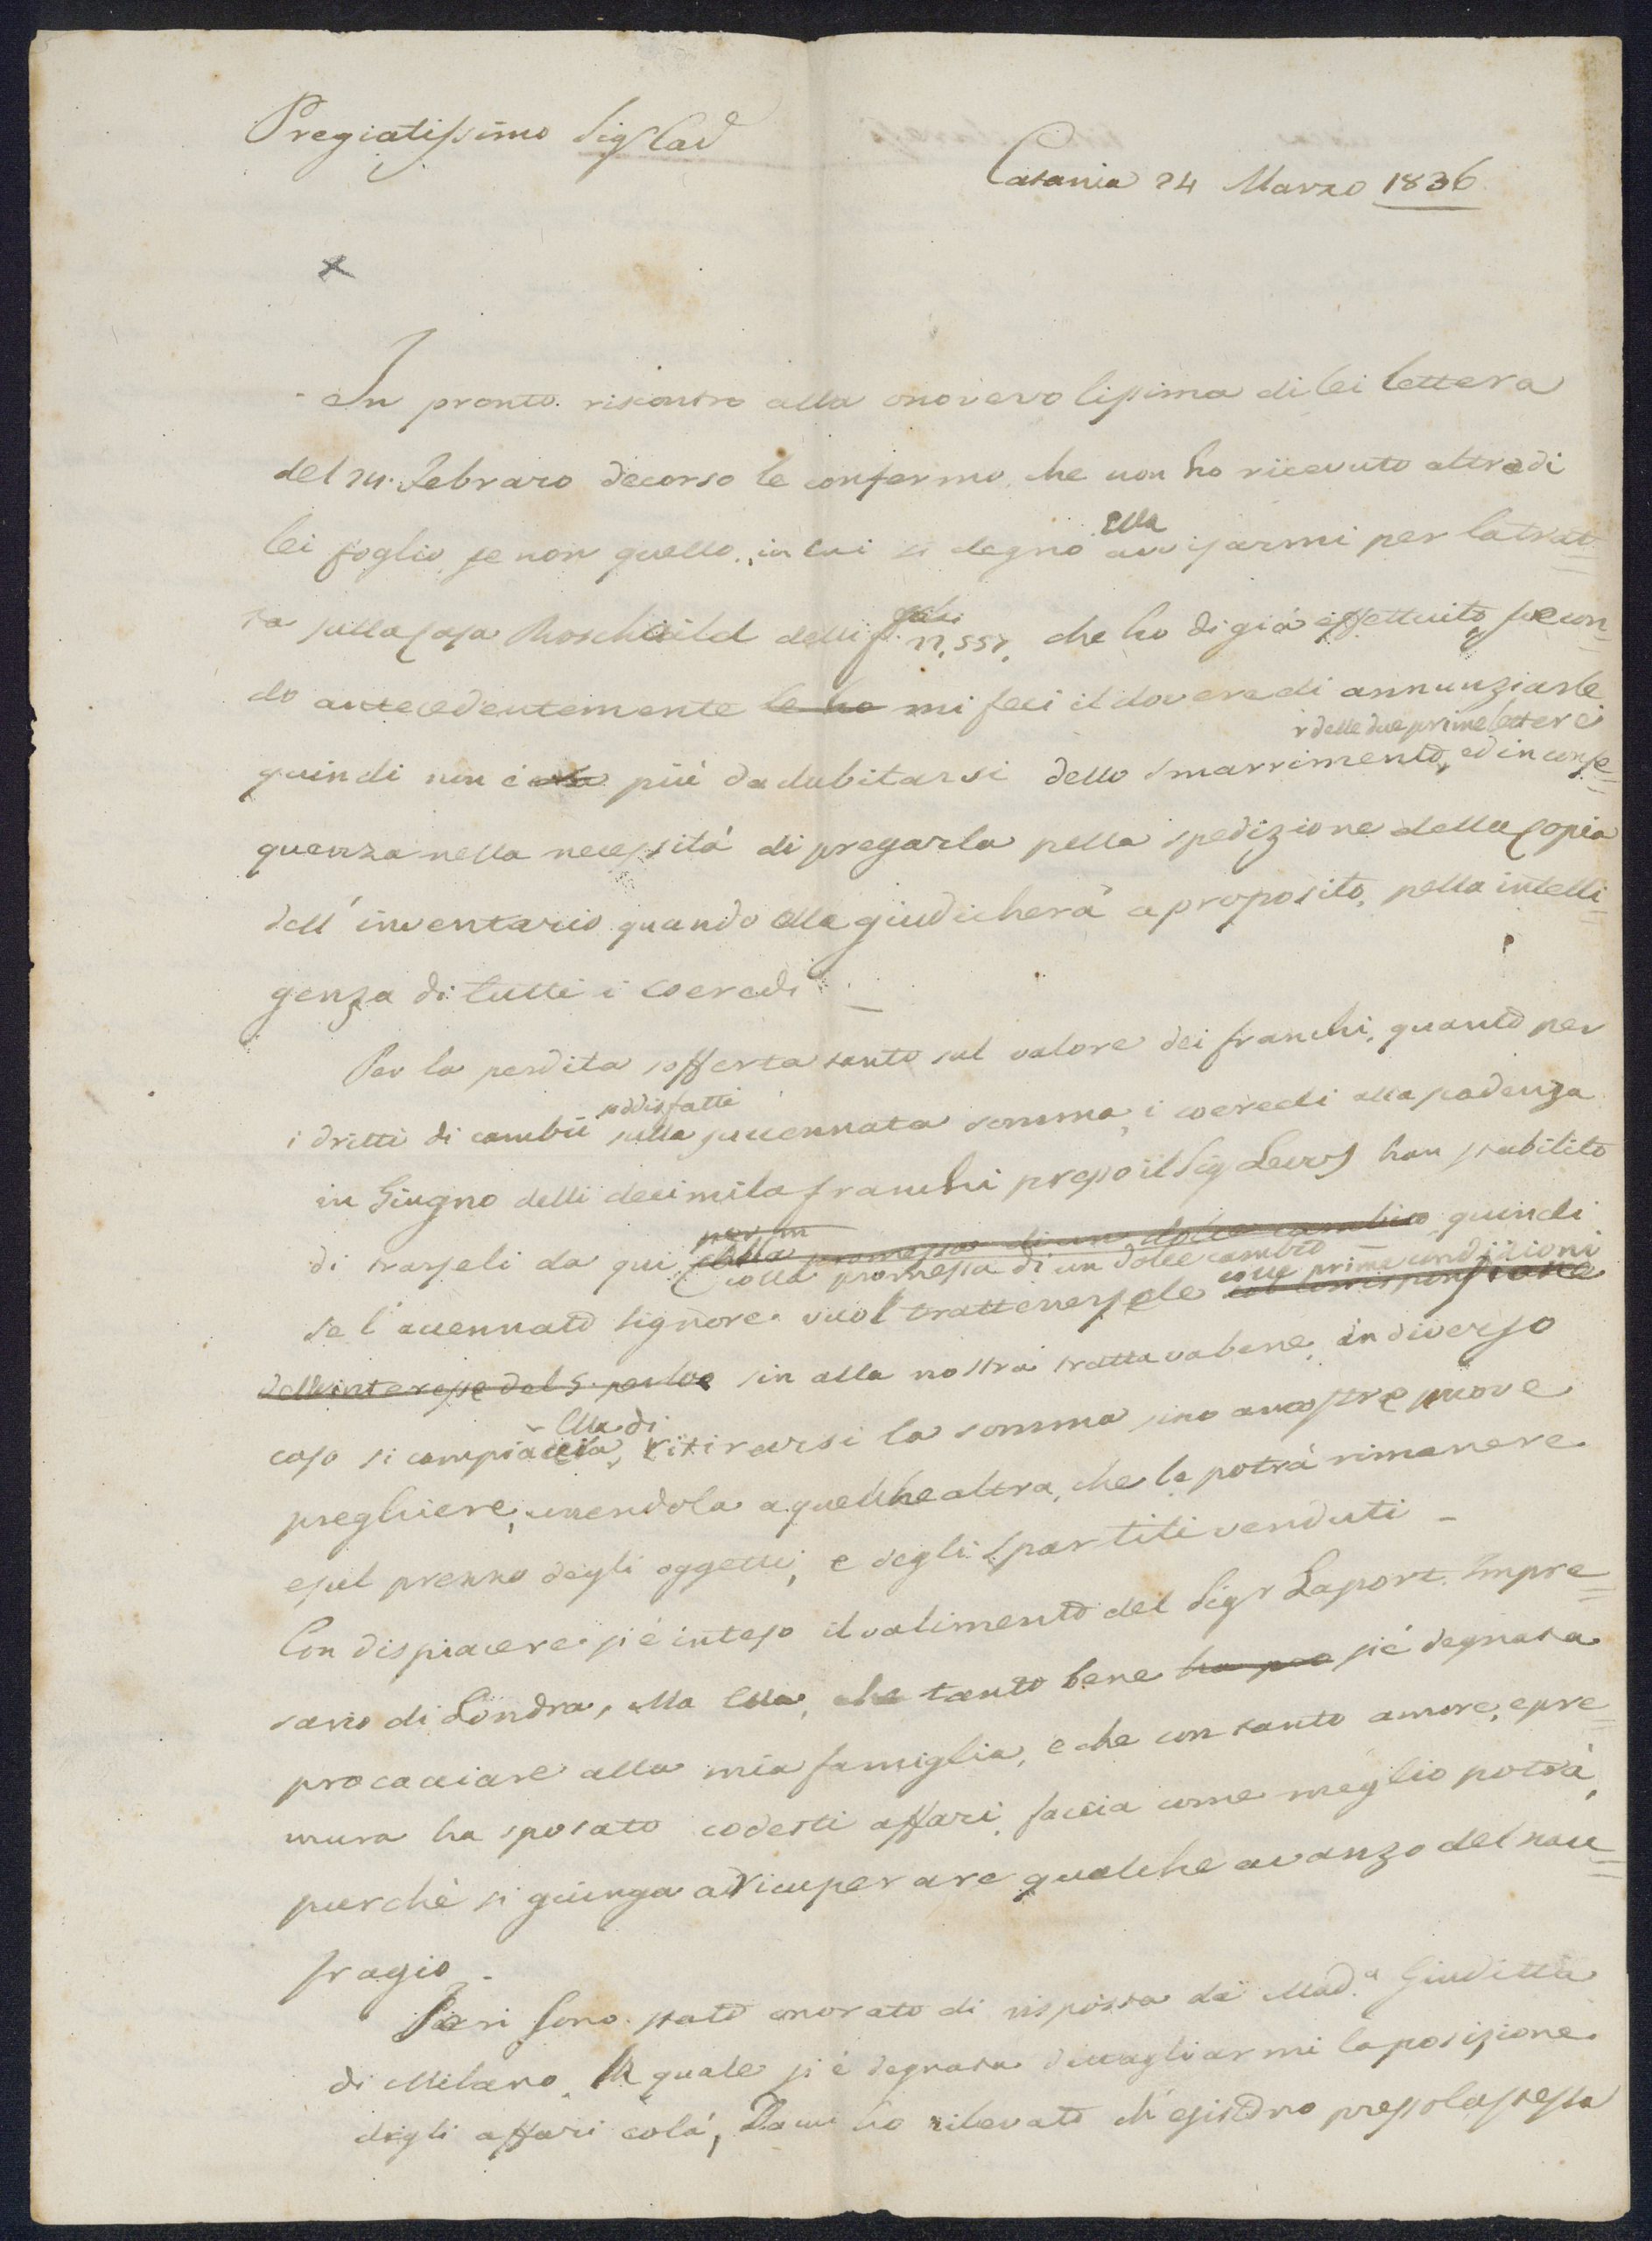 Pregiatissimo Sig Cav
Catania 24 Marzo 1836
In pronto riscontro alla onorevolissima di lei lettera
del 24. Febraro decorso le confermo, che non ho ricevuto altro di
lei foglio, se non quello, in cui si degnò Ella avvisarmi per la trat=
ta sulla Casa Roschaild delli che ho di già effettuito, secon=
do antecedentemente le ho mi feci il dovere di annunziarle
quindi non è più da dubitarsi dello smarrimento delle due prime lettere, ed in conse=
quenza nella necessità di pregarla pella spedizione della Copia
dell'inventario quando ella giudicherà a proposito, pella intelli=
genza di tutti i coeredi _
Per la perdita sofferta tanto sul valore dei franchi, quanto per
i dritti di cambii soddisfatti sulla succennata somma, i coeredi alla scadenza
in Giugno delli decimila franchi presso il Sig Leurs han stabilito
di trarseli da qui colla promessa di un dolce cambio quindi
colla promessa di un dolce cambio
se l'accennato Signore vuol trattenersele colle prime condizioni col corrisponsione
dell'interesse del 5. per sin alla nostra tratta va bene, in diverso
caso si compiaccia Ella di ritirarsi la somma sino a nostre nuove
preghiere, unendola a quelche altra, che le potrà rimanere
e sul prezzo degli oggetti, e degli Spartiti venduti _
Con dispiacere si è inteso il valimento del Sigr Laport. Impre=
sario di Londra, Ma Ella, che tanto bene si è degnata
procacciare alla mia famiglia, e che con tanto amore, e pre=
mura ha sposato codesti affari, faccia come meglio potrà,
purchè si giunga a ricuperare qualche avanzo del nau=
fragio.
Ieri Sono stato onorato di risposta da Mad.a Giuditta
di Milano, la quale si è degnata dettagliarmi la posizione
degli affari colà, Da cui ho rilevato ch'esistono presso la stessa